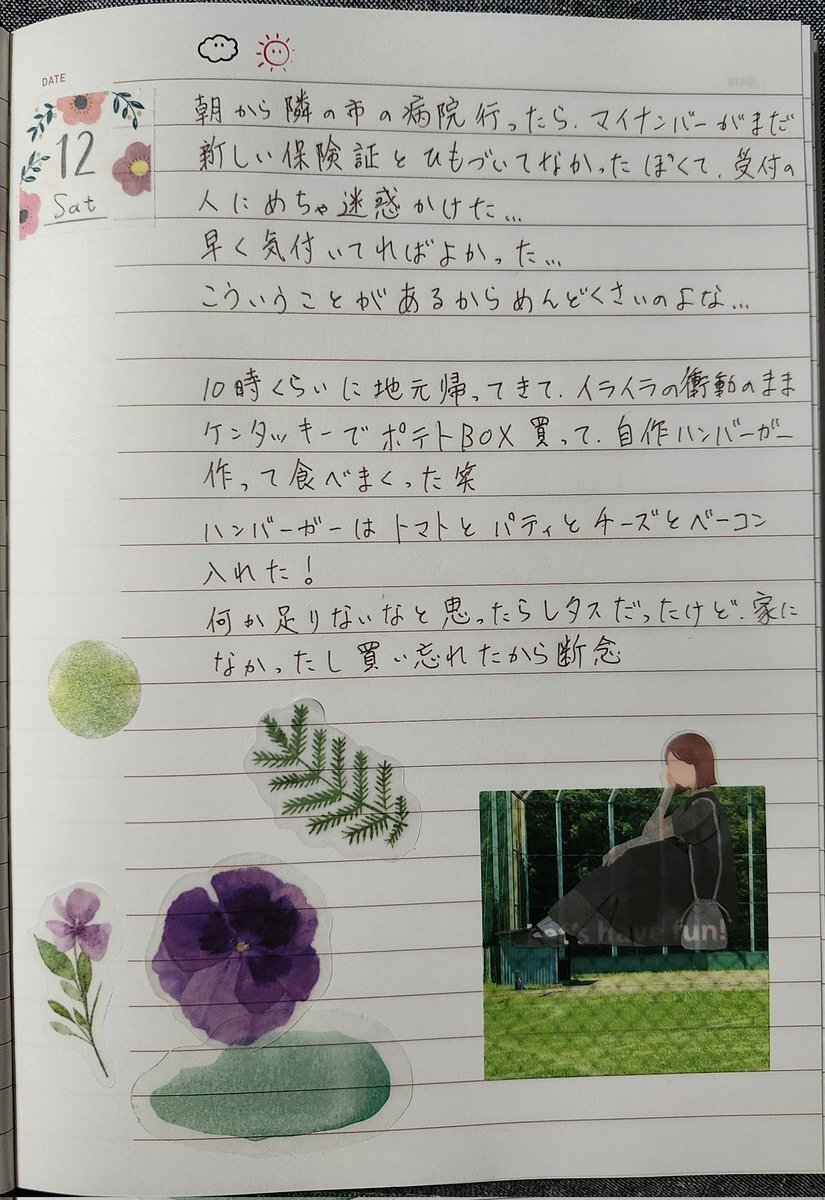 DATE
12
Sat
朝から隣の市の病院行ったら、マイナンバーがまだ
新しい保険証とひもづいてなかったぽくて、受付の
人にめちゃ迷惑かけた…
早く気付いてればよかった…
こういうことがあるからめんどくさいのよな…
10時くらいに地元帰ってきて、イライラの衝動のまま
ケンタッキーでポテトBOX買って、自作ハンバーガー
作って食べまくった笑
ハンバーガーはトマトとパティとチーズとベーコン
入れた!
何か足りないなと思ったらレタスだったけど、家に
なかったし買い忘れたから断念
have fun!